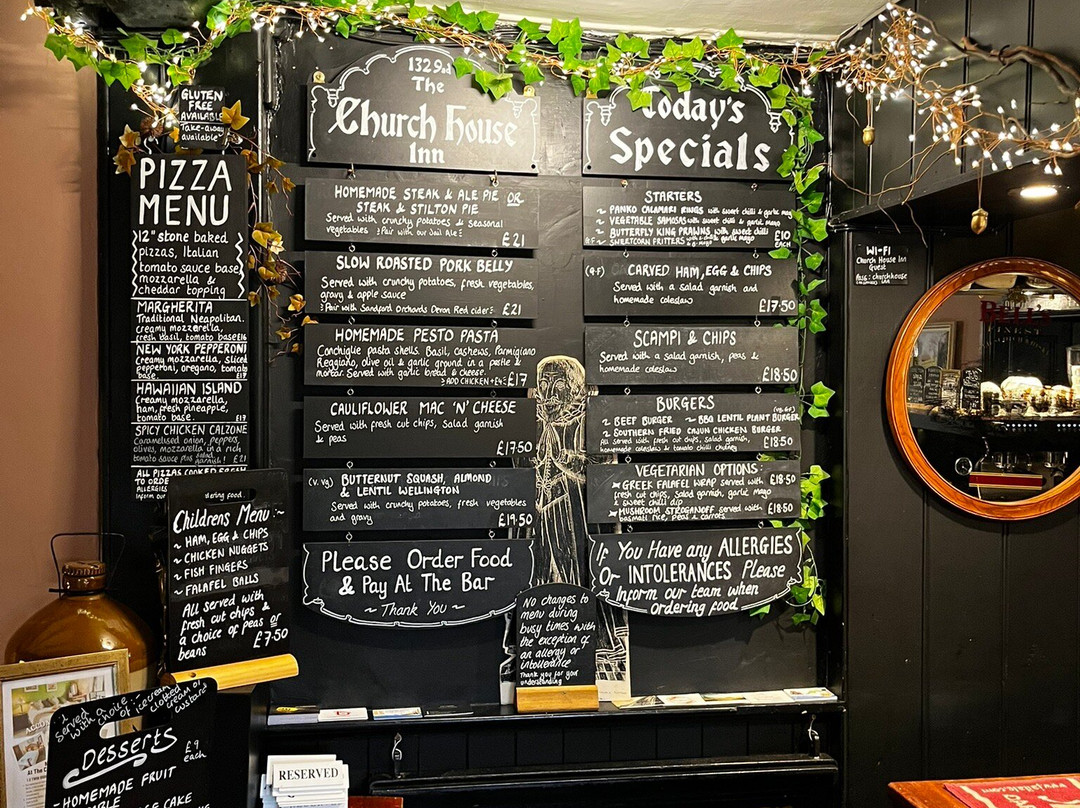 GLUTEN
FREE
AVAILABLE
Take-away
available
PIZZA
MENU
12" stone baked
pizzas, Italian
tomato sauce base
mozzarella &
cheddar topping
MARGHERITA
Traditional Neapolitan.
creamy mozzerella,
fresh basil, tomato base £16
NEW YORK PEPPERONI
Creamy mozzarella, sliced
pepperoni, oregano, tomato
base. £17
HAWAIIAN ISLAND
Creamy mozzarella,
ham, fresh pineapple,
tomato base. £17
SPICY CHICKEN CALZONE
Caramelised onion, peppers,
olives, mozzarella in a rich
tomato sauce plus salad garnish! £21
ALL PIZZAS COOKED FRESH
TO ORDER
ALLERGIES
Inform our
ering food.
Childrens Menu :~
~ HAM, EGG & CHIPS
~ CHICKEN NUGGETS
~ FISH FINGERS
~ FALAFEL BALLS
All served with
fresh cut chips &
a choice of peas or
beans £7.50
Served
with a choice of icecream
clotted cream or
custard
Desserts
£9
each
- HOMEMADE FRUIT
CAKE
1329ad
The
Church House
Inn
HOMEMADE STEAK & ALE PIE OR
STEAK & STILTON PIE
Served with crunchy potatoes & seasonal
vegetables Pair with our Jail Ale £21
SLOW ROASTED PORK BELLY
Served with crunchy potatoes, fresh vegetables,
gravy & apple sauce
Pair with Sandford Orchards Devon Red cider £21
HOMEMADE PESTO PASTA
Conchiglie pasta shells. Basil, cashews, Parmigiano
Reggiano, olive oil & garlic ground in a pestle &
mortar. Served with garlic bread & cheese.
ADD CHICKEN + £4 £17
CAULIFLOWER MAC 'N' CHEESE
Served with fresh cut chips, salad garnish
& peas
£17.50
(V. Vg) BUTTERNUT SQUASH, ALMOND
& LENTIL WELLINGTON
Served with crunchy potatoes, fresh vegetables
and gravy £19.50
Please Order Food
& Pay At The Bar
~ Thank You ~
Today's
Specials
STARTERS
~ PANKO CALAMARI RINGS with sweet chilli & garlic mayo
~ VEGETABLE SAMOSAS with sweet chilli & garlic mayo
~ BUTTERFLY KING PRAWNS with sweet chilli £10
GF ~ SWEETCORN FRITTERS EACH
(G.F) CARVED HAM, EGG & CHIPS
Served with a salad garnish and
homemade coleslaw
£17.50
SCAMPI & CHIPS
Served with a salad garnish, peas &
homemade coleslaw
£18.50
BURGERS
~ BEEF BURGER ~ BBQ LENTIL PLANT BURGER
~ SOUTHERN FRIED CAJUN CHICKEN BURGER
All served with fresh cut chips, salad garnish,
homemade coleslaw & tomato chilli chutney £18.50
VEGETARIAN OPTIONS:
GREEK FALAFEL WRAP served with £18.50
fresh cut chips, salad garnish, garlic mayo
& sweet chilli dip
MUSHROOM STROGANOFF served with £18.50
basmati rice, peas & carrots
If You Have any ALLERGIES
Or INTOLERANCES Please
Inform our team when
ordering food
No changes to
menu during
busy times with
the exception of
an allergy or
intollerance
Thank you for your
understanding
WI-FI
Church House Inn
Guest
Pass: churchhouse
RESERVED